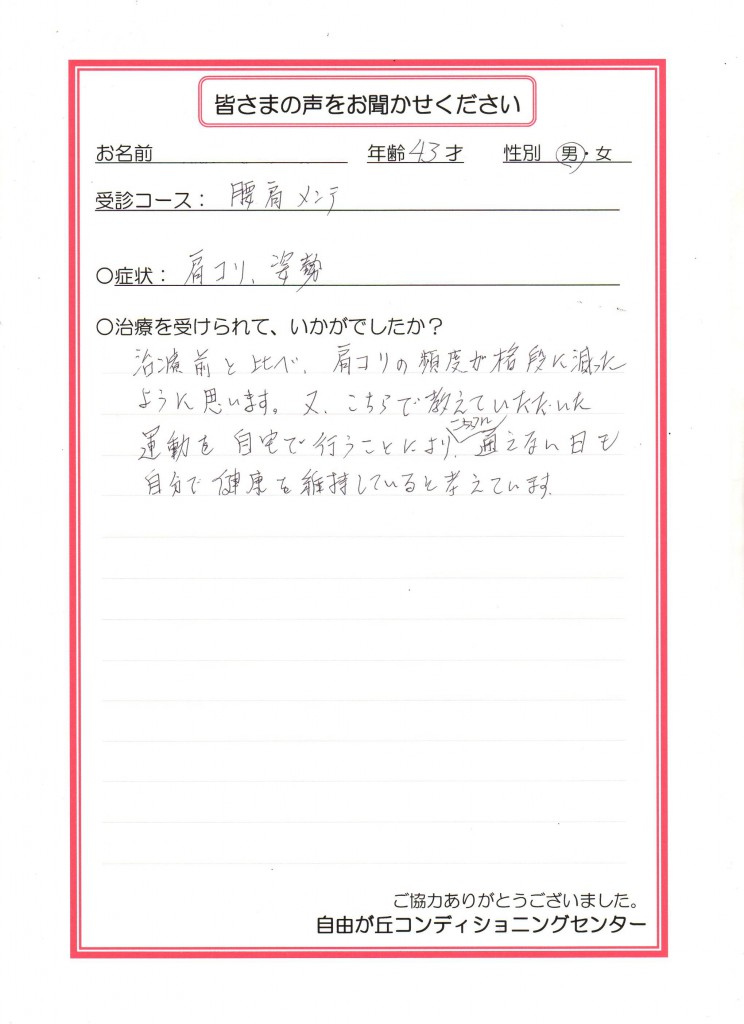 皆さまの声をお聞かせください
お名前 年齢 43 才 性別 男・女
受診コース： 腰肩メンテ
○症状： 肩コリ、姿勢
○治療を受けられて、いかがでしたか？
治療前と比べ、肩コリの頻度が格段に減った
ように思います。又、こちらで教えていただいた
運動を自宅で行うことにより、こちらに通えない日も
自分で健康を維持していると考えています。
ご協力ありがとうございました。
自由が丘コンディショニングセンター